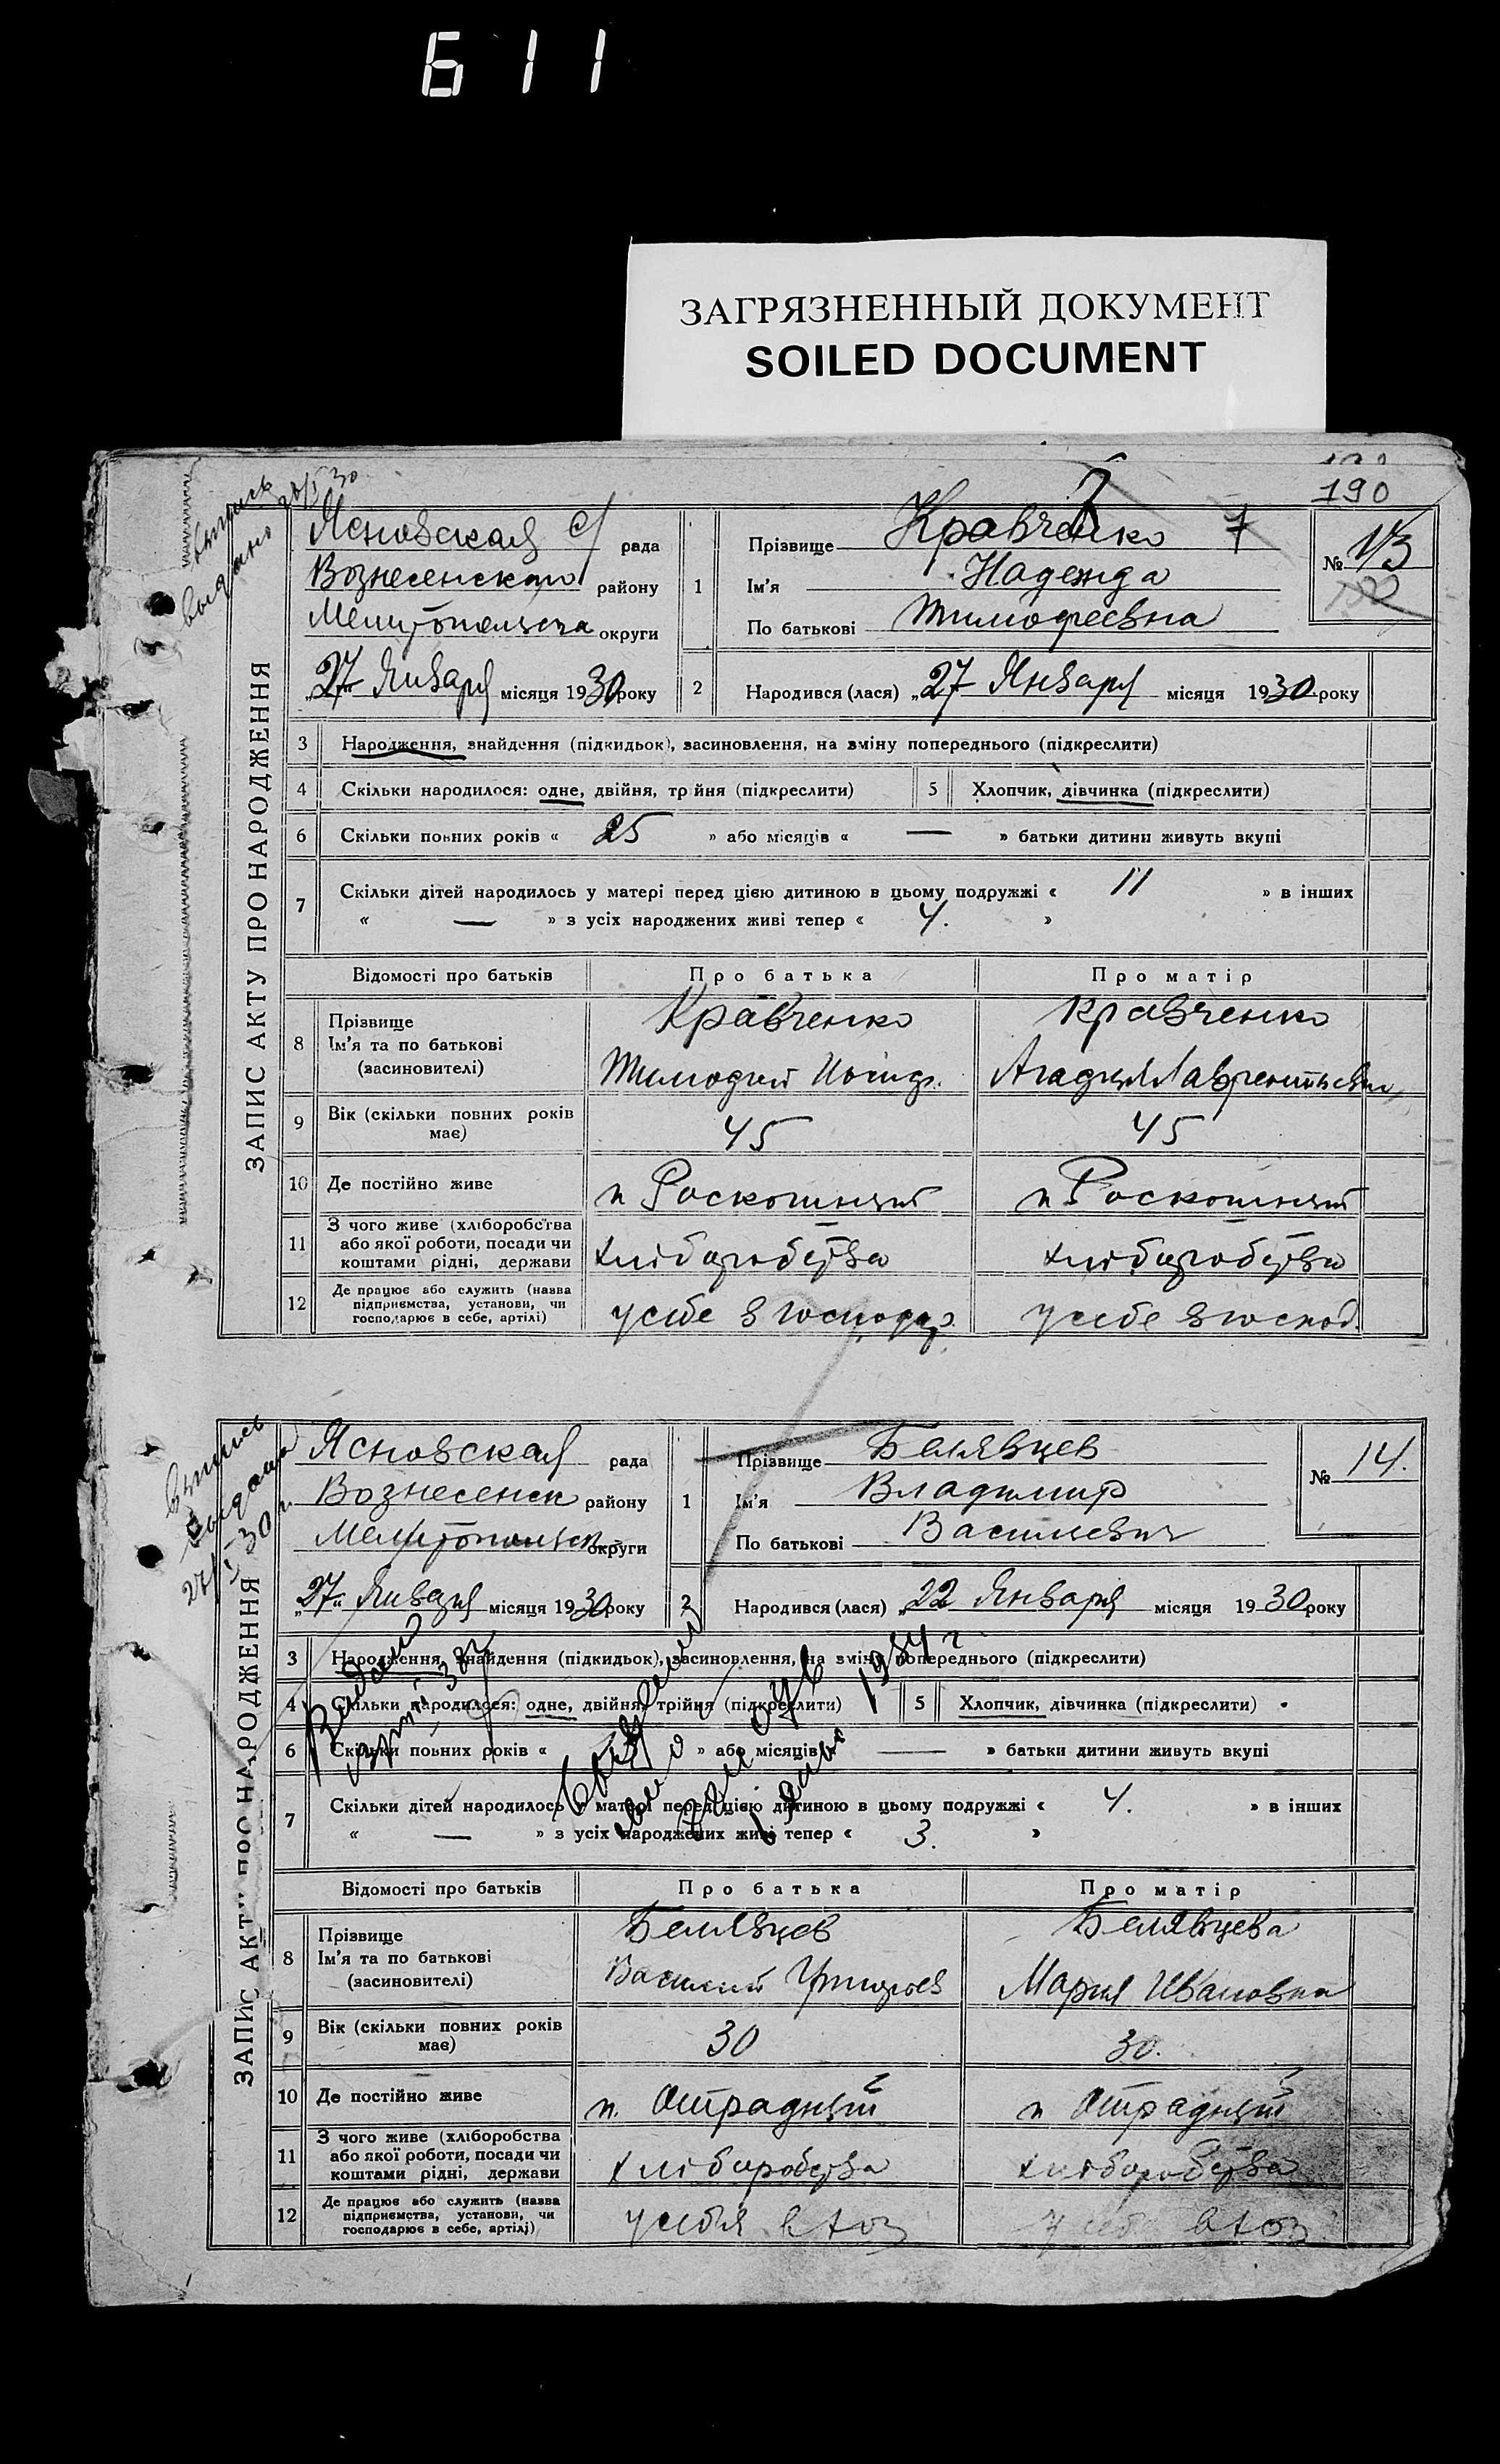 611
ЗАГРЯЗНЕННЫЙ ДОКУМЕНТ
SOILED DOCUMENT
190
выпись
выдано
ЗАПИС АКТУ ПРО НАРОДЖЕННЯ
Ясновская с/ рада
Вознесенского району
округи
„27" Января місяця 1930 року
1 Прізвище Кравченко
Ім'я Надежда
По батькові Тимофеевна
№ 13
2 Народився (лася) „27 Января місяця 1930 року
3 Народження, знайдення (підкидьок), засиновлення, на зміну попереднього (підкреслити)
4 Скільки народилося: одне, двійня, трійня (підкреслити) 5 Хлопчик, дівчинка (підкреслити)
6 Скільки повних років « 25 » або місяців « — » батьки дитини живуть вкупі
7 Скільки дітей народилось у матері перед цією дитиною в цьому подружжі « 11 » в інших
« — » з усіх народжених живі тепер « 4. »
Відомості про батьків Про батька Про матір
8 Прізвище Кравченко Кравченко
Ім'я та по батькові
(засиновителі) Тимофей
9 Вік (скільки повних років
має) 45 45
10 Де постійно живе п Роскошный п Роскошный
11 З чого живе (хліборобства
або якої роботи, посади чи
коштами рідні, держави хліборобства хліборобства
12 Де працює або служить (назва
підприємства, установи, чи
господарює в себе, артілі) у себе в господар. у себе в господ.
выпись
выдана
27/I-30 г.
ЗАПИС АКТУ ПРО НАРОДЖЕННЯ
Ясновская рада
Вознесенск району
округи
„27" Января місяця 1930 року
1 Прізвище Белявцев
Ім'я Владимир
По батькові Васильевич
№ 14.
2 Народився (лася) „22 Января місяця 1930 року
3 Народження, знайдення (підкидьок), засиновлення, на зміну попереднього (підкреслити)
4 Скільки народилося: одне, двійня, трійня (підкреслити) 5 Хлопчик, дівчинка (підкреслити)
6 Скільки повних років « » або місяців « — » батьки дитини живуть вкупі
7 Скільки дітей народилось у матері перед цією дитиною в цьому подружжі « 4. » в інших
« — » з усіх народжених живі тепер « 3. »
Відомості про батьків Про батька Про матір
8 Прізвище Белявцев Белявцева
Ім'я та по батькові
(засиновителі) Василий Григорьев Мария Ивановна
9 Вік (скільки повних років
має) 30 30.
10 Де постійно живе п. Отрадный п Отрадный
11 З чого живе (хліборобства
або якої роботи, посади чи
коштами рідні, держави хліборобства хліборобства
12 Де працює або служить (назва
підприємства, установи, чи
господарює в себе, артілі)